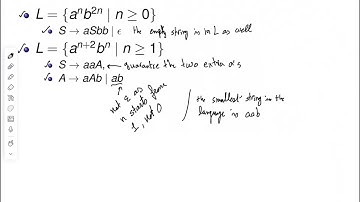 L = {aⁿb²ⁿ | n ≥ 0}
S → aSbb | ϵ the empty string is in L as well
L = {aⁿ⁺²bⁿ | n ≥ 1}
S → aaA, ← guarantee the two extra a's
A → aAb | ab
not ε as
n starts from
1, not 0
the smallest string in the
language is aab